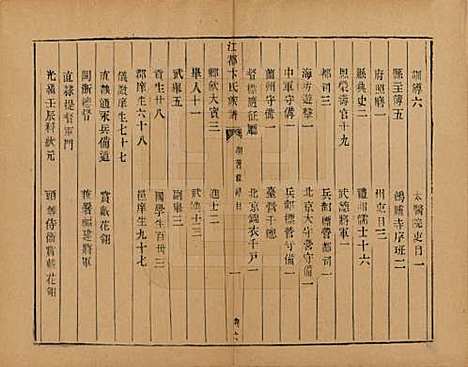 訓導六
太醫院吏目一
縣主簿五
鴻臚寺序班二
府照磨一
州吏目三
縣典史二
禮部儒士十六
恩榮壽官十九
武德將軍一
海防遊擊一
兵部標營都司一
中軍守備一
北京大守營守備
蘭州守備一
兵部標營守備一
督標隨征廳
臺營千總
北京錦衣千戶一
江都卞氏族譜
一
鄉飲大賓三
進士二
舉人十一
武進士三
武舉五
副車三
貢生廿八
國學生百廿三
郡庠生六十八
邑庠生九十七
儀徵庠生七十七
直隸通永兵備道
賞戴花翎
閩浙總督
兼署福建將軍
直隸提督軍門
光緒壬辰科武狀元
頭等侍衛賞戴花翎